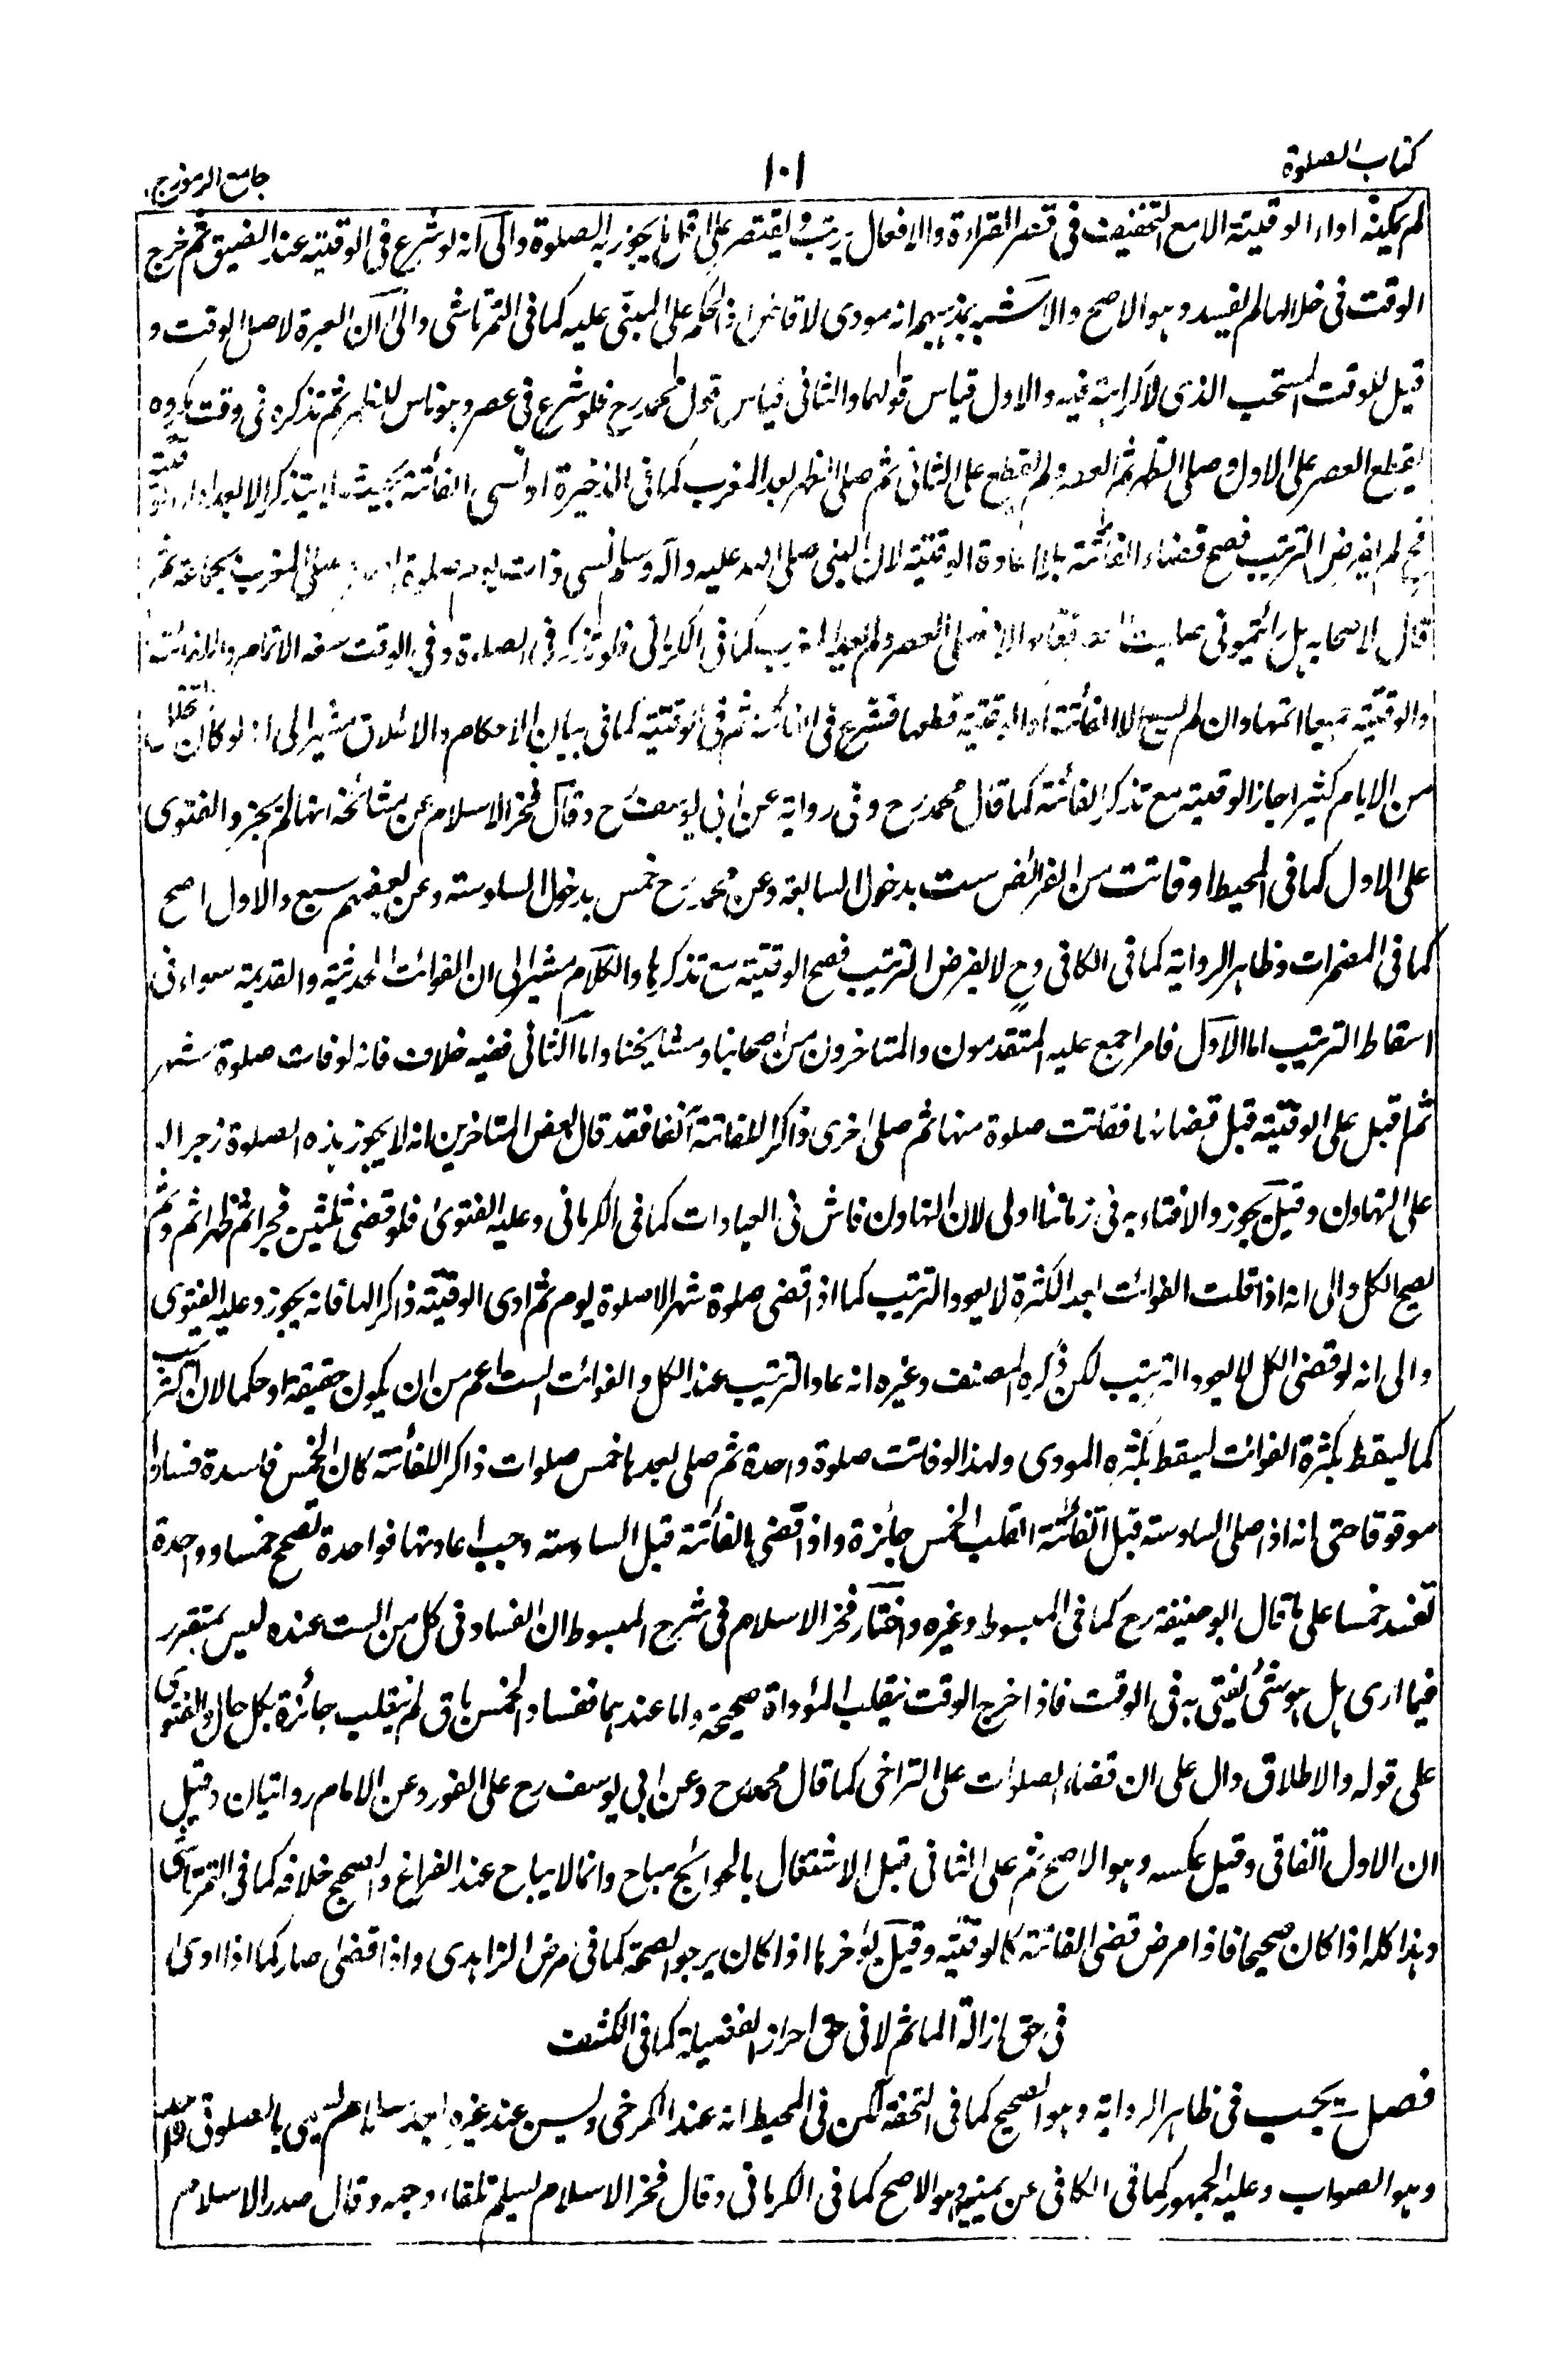 كتاب الصلوة
١٠١
جامع الرموز ج ١
لم يمكنه اداء الوقتية الا مع التخفيف فى قصر القراءة والافعال يرتب ويقتصر على اقل ما يجوز به الصلوة والى انه لو شرع فى الوقتية عند الضيق ثم خرج
الوقت فى خلالها لم يفسد وهو الاصح والاشبه بمذهبهم انه مودى لا قاض اذ الحكم على المبنى عليه كما فى التمرتاشى والى ان العبرة لاصل الوقت و
قيل للوقت المستحب الذى لا كراهة فيه والاول قياس قولهما والثانى قياس قول محمد رح فلو شرع فى عصر وهو ناس للظهر ثم تذكره فى وقت مكروه
يقطع العصر على الاول وصلى الظهر ثم العصر ولم يقطع على الثانى ثم صلى الظهر بعد المغرب كما فى الذخيرة او نسى الفائتة بحيث لا يتذكر الا بعد اداء الوقتية
فح لم يفرض الترتيب فصح قضاء الفائتة بلا اعادة الوقتية لان النبى صلى الله عليه وآله وسلم نسى ذات يوم صلوة العصر وصلى المغرب بجماعة ثم
قال لاصحابه هل رائتمونى صليت العصر فقالوا لا فصلى العصر ولم يعد المغرب كما فى الكرمانى فلو تذكر فى الصلوة وفى الوقت سعة الاتمام والفائتة
والوقتية جميعا اتمها وان لم يسع الا الفائتة او الوقتية قطعها فشرع فى الفائتة ثم فى الوقتية كما فى بيان الاحكام والاطلاق مشير الى انه لو كان تخلل
من الايام كثيرا جاز الوقتية مع تذكر الفائتة كما قال محمد رح وفى رواية عن ابى يوسف رح وقال فخر الاسلام عن مشائخه انها لم يجز والفتوى
على الاول كما فى المحيط او فاتت من الفرائض ست بدخول السابعة وعن محمد رح خمس بدخول السادسة وعن بعضهم سبع والاول اصح
كما فى المضمرات وظاهر الرواية كما فى الكافى وح لا يفرض الترتيب فصح الوقتية مع تذكرها والكلام مشير الى ان الفوائت الحديثة والقديمة سواء فى
اسقاط الترتيب اما الاول فامر اجمع عليه المتقدمون والمتاخرون من اصحابنا ومشايخنا واما الثانى ففيه خلاف فانه لو فات صلوة شهر
ثم اقبل على الوقتية قبل قضائها ففاتت صلوة منها ثم صلى اخرى ذاكرا للفائتة آنفا فقد قال بعض المتاخرين انه لا يجوز هذه الصلوة زجرا له
على التهاون وقيل يجوز والافتاء به فى زماننا اولى لان التهاون فاش فى العبادات كما فى الكرمانى وعليه الفتوى فلو قضى ثلثين فجرا ثم ظهرا ثم وثم
يصح الكل والى انه اذا قلت الفوائت بعد الكثرة لا يعود الترتيب كما اذا قضى صلوة شهر الا صلوة يوم ثم ادى الوقتية ذاكرا لها فانه يجوز وعليه الفتوى
والى انه لو قضى الكل لا يعود الترتيب لكن ذكره المصنف وغيره انه عاد الترتيب عند الكل والفوائت الست اعم من ان يكون حقيقة او حكما لان الترتيب
كما يسقط بكثرة الفوائت يسقط بكثره المودى ولهذا لو فاتت صلوة واحدة ثم صلى بعدها خمس صلوات ذاكرا للفائتة كان الخمس فاسدة فسادا
موقوفا حتى انه اذا صلى السادسة قبل الفائتة انقلب الخمس جائزة واذا قضى الفائتة قبل السادسة وجب اعادتها فواحدة تصحح خمسا وواحدة
تفسد خمسا على ما قال ابو حنيفة رح كما فى المبسوط وغيره واختار فخر الاسلام فى شرح المبسوط ان الفساد فى كل من الست عنده ليس بمتقرر
فيما ارى بل هو شئ يفتى به فى الوقت فاذا خرج الوقت ينقلب المؤداة صحيحة واما عندهما ففساد الخمس باق لم ينقلب جائزة بكل حال والفتوى
على قوله والاطلاق دال على ان قضاء الصلوات على التراخى كما قال محمد رح وعن ابى يوسف رح على الفور وعن الامام روايتان وقيل
ان الاول اتفاقى وقيل عكسه وهو الاصح ثم على الثانى قيل الاشتغال بالحوائج مباح وانما لا يباح عند الفراغ والصحيح خلافه كما فى التمرتاشى
وهذا كله اذا كان صحيحا فاذا مرض قضى الفائتة كالوقتية وقيل يؤخرها اذا كان يرجو الصحة كما فى مرض الزاهدى واذا قضى صار كما اذا ادى
فى حق ازالة الماثم لا فى حق احراز الفضيلة كما فى الكشف
فصل يجب فى ظاهر الرواية وهو الصحيح كما فى التحفة لكن فى المحيط انه عند الكرخى وليس عند غيره بعد سلام
وهو الصواب وعليه الجمهور كما فى الكافى عن يمينه وهو الاصح كما فى الكرمانى وقال فخر الاسلام يسلم تلقاء وجهه وقال صدر الاسلام